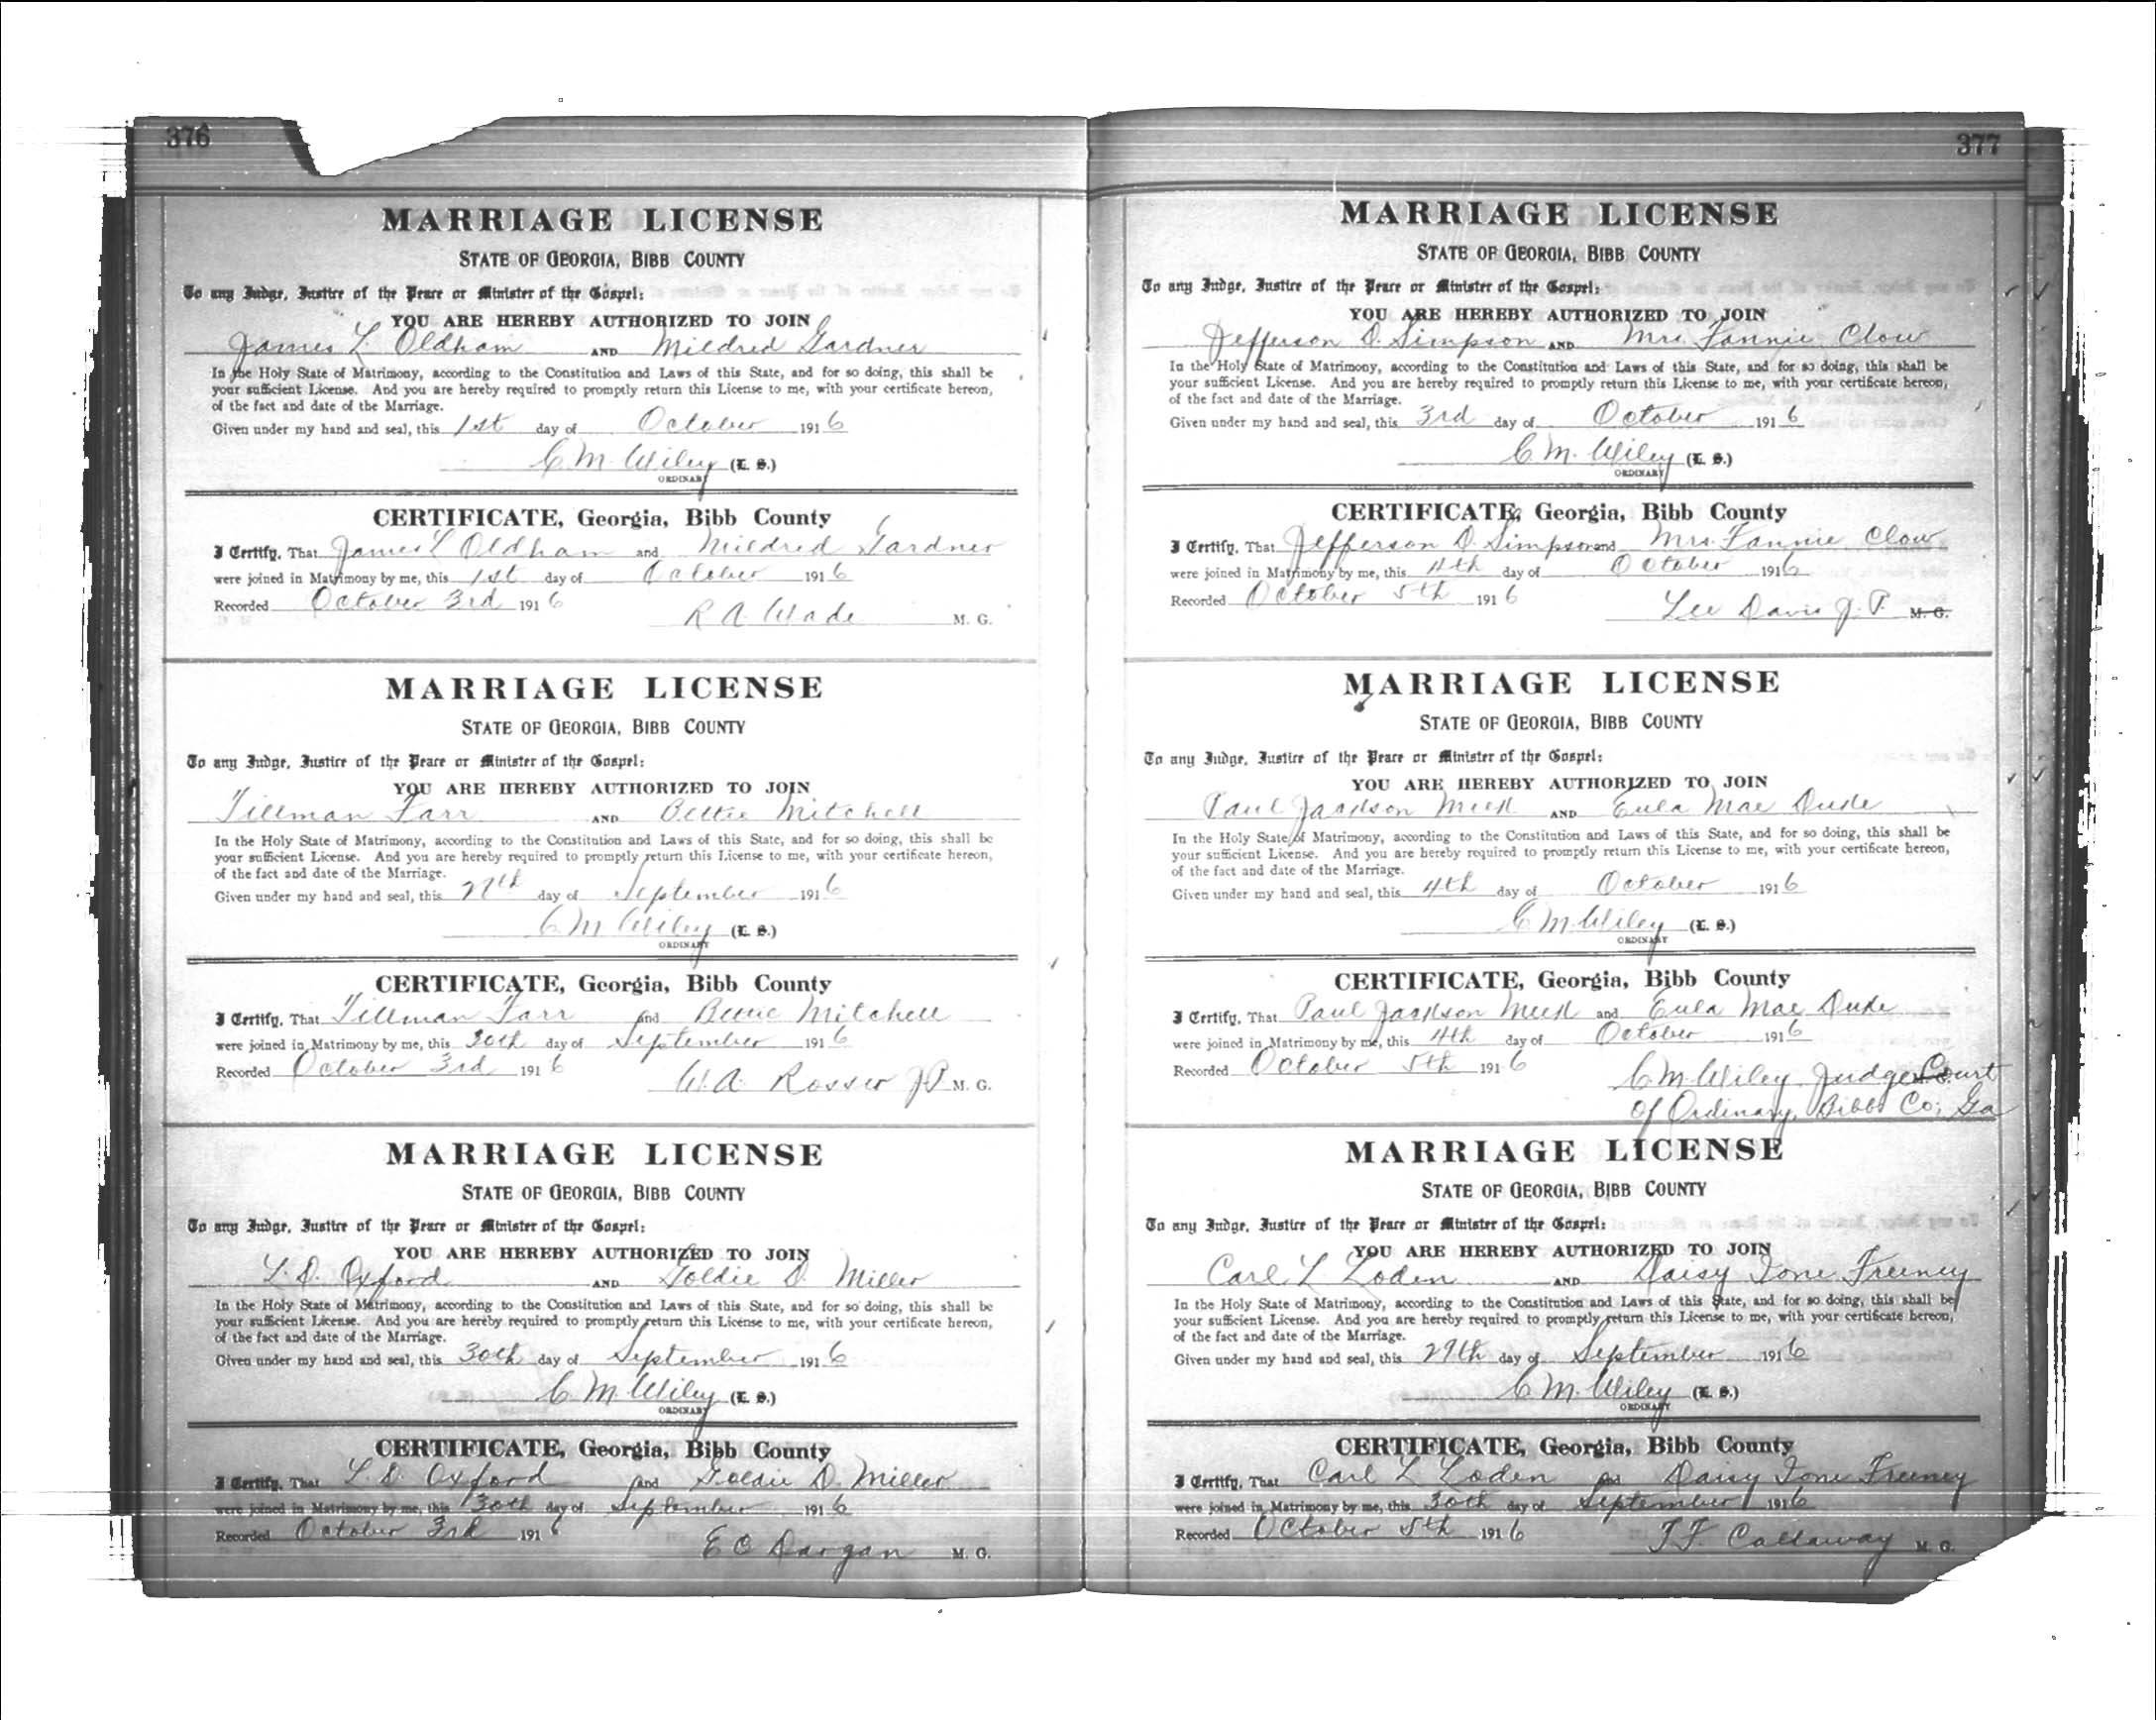 376
MARRIAGE LICENSE
STATE OF GEORGIA, BIBB COUNTY
To any Judge, Justice of the Peace or Minister of the Gospel:
YOU ARE HEREBY AUTHORIZED TO JOIN
James L. Oldham AND Mildred Gardner
In the Holy State of Matrimony, according to the Constitution and Laws of this State, and for so doing, this shall be
your sufficient License. And you are hereby required to promptly return this License to me, with your certificate hereon,
of the fact and date of the Marriage.
Given under my hand and seal, this 1st day of October 1916
C. M. Wiley (L. S.)
ORDINARY
CERTIFICATE, Georgia, Bibb County
I Certify, That James L Oldham and Mildred Gardner
were joined in Matrimony by me, this 1st day of October 1916
Recorded October 3rd 1916
R A Wade M. G.
MARRIAGE LICENSE
STATE OF GEORGIA, BIBB COUNTY
To any Judge, Justice of the Peace or Minister of the Gospel:
YOU ARE HEREBY AUTHORIZED TO JOIN
Tillman Farr AND Bettie Mitchell
In the Holy State of Matrimony, according to the Constitution and Laws of this State, and for so doing, this shall be
your sufficient License. And you are hereby required to promptly return this License to me, with your certificate hereon,
of the fact and date of the Marriage.
Given under my hand and seal, this day of September 1916
C M Wiley (L. S.)
ORDINARY
CERTIFICATE, Georgia, Bibb County
I Certify, That Tillman Farr and Bettie Mitchell
were joined in Matrimony by me, this 30th day of September 1916
Recorded October 3rd 1916
W. A. Rosser J P M. G.
MARRIAGE LICENSE
STATE OF GEORGIA, BIBB COUNTY
To any Judge, Justice of the Peace or Minister of the Gospel:
YOU ARE HEREBY AUTHORIZED TO JOIN
L. D. Oxford AND Goldie D. Miller
In the Holy State of Matrimony, according to the Constitution and Laws of this State, and for so doing, this shall be
your sufficient License. And you are hereby required to promptly return this License to me, with your certificate hereon,
of the fact and date of the Marriage.
Given under my hand and seal, this 30th day of September 1916
C. M. Wiley (L. S.)
ORDINARY
CERTIFICATE, Georgia, Bibb County
I Certify, That L. D. Oxford and Goldie D. Miller
were joined in Matrimony by me, this 30th day of September 1916
Recorded October 3rd 1916
E C Dargan M. G.
377
MARRIAGE LICENSE
STATE OF GEORGIA, BIBB COUNTY
To any Judge, Justice of the Peace or Minister of the Gospel:
YOU ARE HEREBY AUTHORIZED TO JOIN
Jefferson D. Simpson AND Mrs. Fannie Clow
In the Holy State of Matrimony, according to the Constitution and Laws of this State, and for so doing, this shall be
your sufficient License. And you are hereby required to promptly return this License to me, with your certificate hereon,
of the fact and date of the Marriage.
Given under my hand and seal, this 3rd day of October 1916
C. M. Wiley (L. S.)
ORDINARY
CERTIFICATE, Georgia, Bibb County
I Certify, That Jefferson D. Simpson and Mrs. Fannie Clow
were joined in Matrimony by me, this 4th day of October 1916
Recorded October 5th 1916
Lee Davis J. P. M. G.
MARRIAGE LICENSE
STATE OF GEORGIA, BIBB COUNTY
To any Judge, Justice of the Peace or Minister of the Gospel:
YOU ARE HEREBY AUTHORIZED TO JOIN
Paul Jackson AND Eula Mae Dude
In the Holy State of Matrimony, according to the Constitution and Laws of this State, and for so doing, this shall be
your sufficient License. And you are hereby required to promptly return this License to me, with your certificate hereon,
of the fact and date of the Marriage.
Given under my hand and seal, this 4th day of October 1916
C. M. Wiley (L. S.)
ORDINARY
CERTIFICATE, Georgia, Bibb County
I Certify, That Paul Jackson and Eula Mae Dude
were joined in Matrimony by me, this 4th day of October 1916
Recorded October 5th 1916
C. M. Wiley Judge Court
of Ordinary, Bibb Co; Ga
MARRIAGE LICENSE
STATE OF GEORGIA, BIBB COUNTY
To any Judge, Justice of the Peace or Minister of the Gospel:
YOU ARE HEREBY AUTHORIZED TO JOIN
Carl L Loden AND Daisy Ione Freeney
In the Holy State of Matrimony, according to the Constitution and Laws of this State, and for so doing, this shall be
your sufficient License. And you are hereby required to promptly return this License to me, with your certificate hereon,
of the fact and date of the Marriage.
Given under my hand and seal, this 29th day of September 1916
C. M. Wiley (L. S.)
ORDINARY
CERTIFICATE, Georgia, Bibb County
I Certify, That Carl L Loden and Daisy Ione Freeney
were joined in Matrimony by me, this 30th day of September 1916
Recorded October 5th 1916
T. F. Callaway M. G.